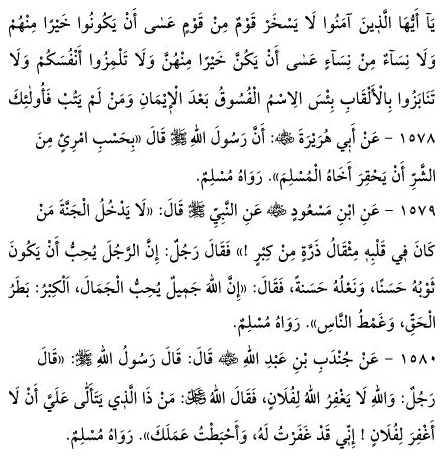 يَا أَيُّهَا الَّذِينَ آمَنُوا لَا يَسْخَرْ قَوْمٌ مِنْ قَوْمٍ عَسٰى أَنْ يَكُونُوا خَيْرًا مِنْهُمْ
وَلَا نِسَآءٌ مِنْ نِسَاءٍ عَسٰى أَنْ يَكُنَّ خَيْرًا مِنْهُنَّ وَلَا تَلْمِزُوا أَنْفُسَكُمْ وَلَا
تَنَابَزُوا بِالْأَلْقَابِ بِئْسَ الِاسْمُ الْفُسُوقُ بَعْدَ الْإِيْمَانِ وَمَنْ لَمْ يَتُبْ فَأُولٰئِكَ
١٥٧٨ - عَنْ أَبِي هُرَيْرَةَ ؓ: أَنَّ رَسُولَ اللهِ ﷺ قَالَ «بِحَسْبِ امْرِئٍ مِنَ
الشَّرِّ أَنْ يَحْقِرَ أَخَاهُ الْمُسْلِمَ». رَوَاهُ مُسْلِمٌ.
١٥٧٩ - عَنِ ابْنِ مَسْعُودٍ ؓ عَنِ النَّبِيِّ ﷺ قَالَ: «لَا يَدْخُلُ الْجَنَّةَ مَنْ
كَانَ فِي قَلْبِهِ مِثْقَالُ ذَرَّةٍ مِنْ كِبْرٍ !» فَقَالَ رَجُلٌ: إِنَّ الرَّجُلَ يُحِبُّ أَنْ يَكُونَ
ثَوْبُهُ حَسَنًا، وَنَعْلُهُ حَسَنةً، فَقَالَ: «إِنَّ اللهَ جَمِيلٌ يُحِبُّ الْجَمَالَ، اَلْكِبْرُ: بَطَرُ
الْحَقِّ، وَغَمْطُ النَّاسِ». رَوَاهُ مُسْلِمٌ.
١٥٨٠ - عَنْ جُنْدَبِ بْنِ عَبْدِ اللهِ ؓ قَالَ: قَالَ رَسُولُ اللهِ ﷺ: «قَالَ
رَجُلٌ: وَاللهِ لَا يَغْفِرُ اللهُ لِفُلَانٍ، فَقَالَ اللهُ ﷻ: مَنْ ذَا الَّذِي يَتَأَلّٰى عَلَيَّ أَنْ لَا
أَغْفِرَ لِفُلَانٍ ! إِنِّي قَدْ غَفَرْتُ لَهُ، وَأَحْبَطْتُ عَمَلَكَ». رَوَاهُ مُسْلِمٌ.